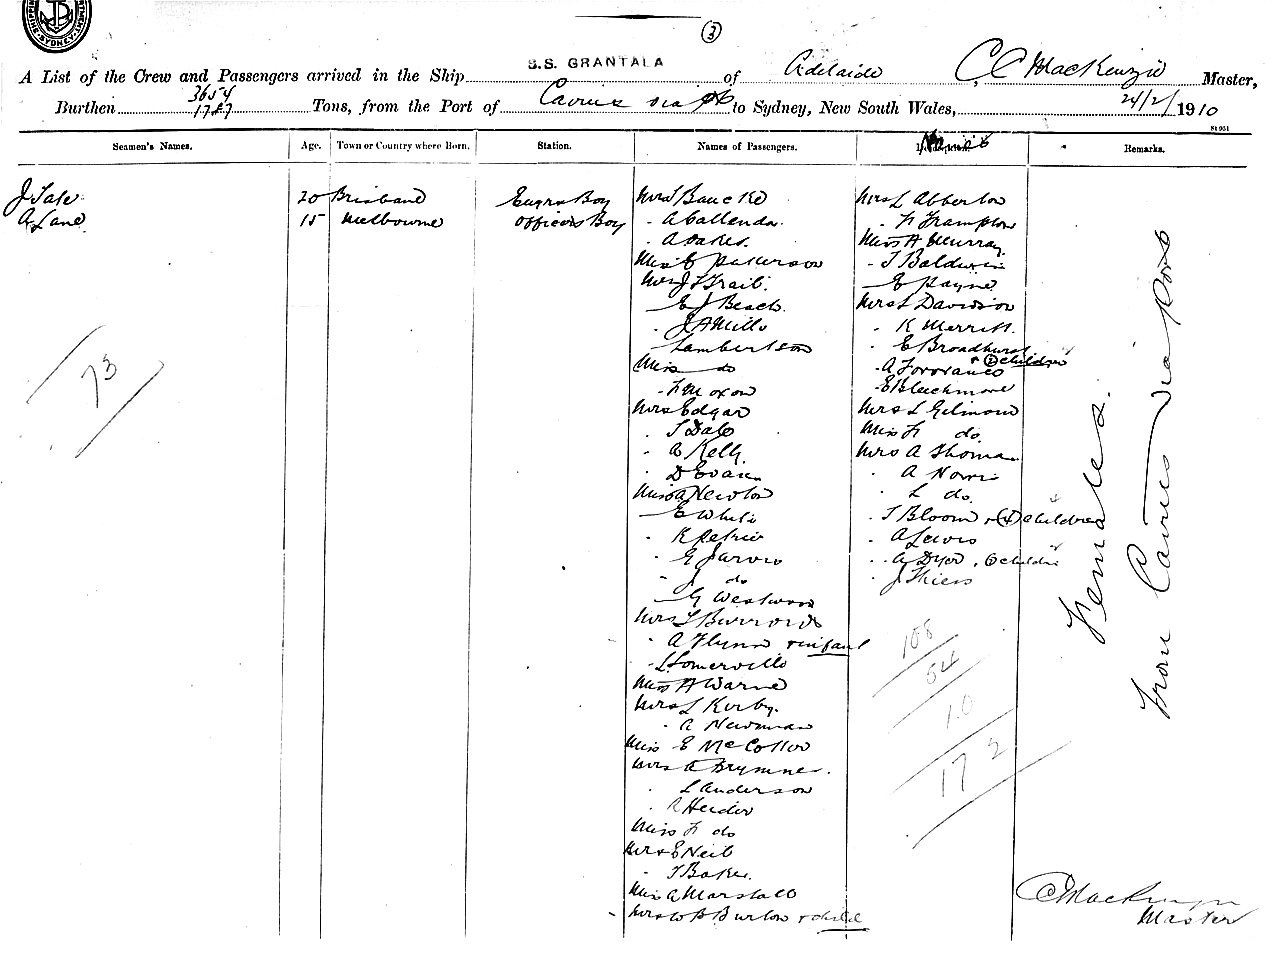 SYDNEY
3
A List of the Crew and Passengers arrived in the Ship S.S. GRANTALA of Adelaide, C C MacKenzie Master,
Burthen 3654 1787 Tons, from the Port of Cairns via to Sydney, New South Wales, 24/2/1910
Seamen's Names. Age. Town or Country where Born. Station. Names of Passengers. Names Remarks.
J Tate 20 Brisbane Boy
A Lane 15 Melbourne Officers Boy
Mrs
" A Callenda
" A Oakes
Miss E Patterson
Mrs J Trail
E J Beach
" J A Mills
Lambertson
Miss do
" F Moxon
Mrs Edgar
" T Dale
" A Kelly
" D Evans
Miss A Newton
" E White
" K Petrie
" E Jarvis
" J do
" G Westwood
Mrs L Burrows
" A Flynn & infant
" L Somerville
Miss A Warne
Mrs L Kirby
" A Newman
Miss E
Mrs A Brymner
" L Anderson
" R Heider
Miss F do
Mrs E Neil
" T Baker
Miss A Marshall
Mrs W B Burton & child
Mrs L Abberton
" F Frampton
Miss A Murray
" T Baldwin
E Payne
Mrs L Davidson
" K Merritt
" E Broadhurst
& 2 children
" A
" E Bleechmore
Mrs L Gilmour
Miss F do
Mrs A Thomas
" A Norris
" L do
" T Bloom & (4) children
" A Lewis
" A Dyer
" J Thiess
Females.
From Cairns via Ports
73
108
54
10
172
C MacKenzie
Master